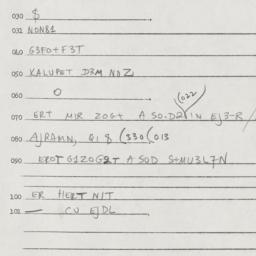 030 $
031 NONB1
040 G3FO+F3T
050 KALUPET D3M NOZ
060 O
(022
070 ERT MIR ZOG+ A SO.D2 IN EJ3-R
080 AJRAMN, (330(013
090 EROT G1ZOG2T A SOD S+MU3L7N
100 ER HERT NIT
101 — CU EJDL